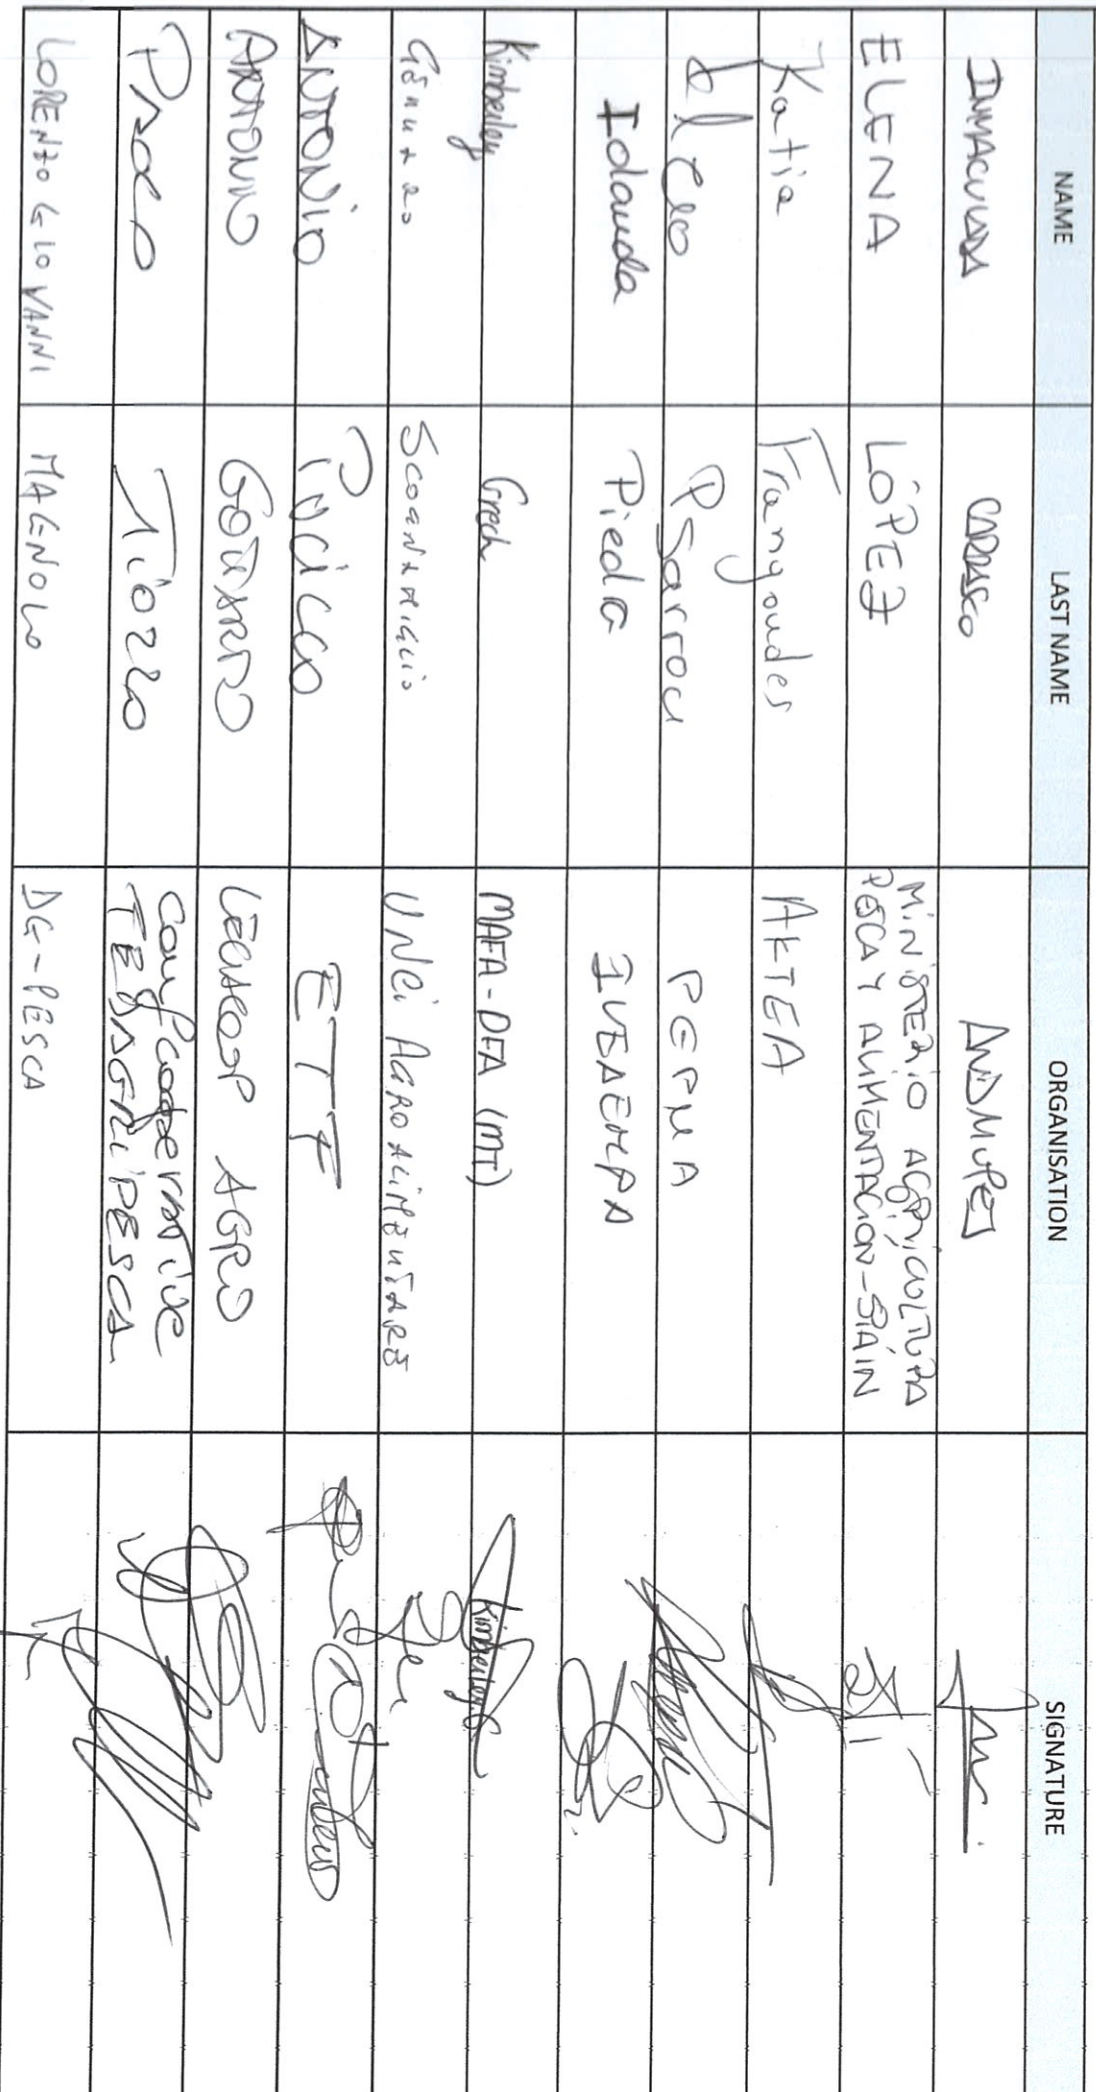 NAME LAST NAME ORGANISATION SIGNATURE
INMACULADA CARRASCO ANDMUPES
ELENA LÓPEZ MINISTERIO AGRICULTURA
PESCA Y ALIMENTACIÓN-SPAIN
Katia Frangoudes AKTEA
Psarrou PEPMA
Iolanda Piedra
Kimberley Grech MAFA-DFA (MT) Kimberley G
Gennaro Scognamiglio UNCI AGROALIMENTARE
ANTONIO PUCILLO ETF
ANTONIO GOTTARDO LEGACOOP AGRO
PAOLO TIOZZO Confcooperative
FEDAGRIPESCA
LORENZO GIOVANNI MAGNOLO DG-PESCA